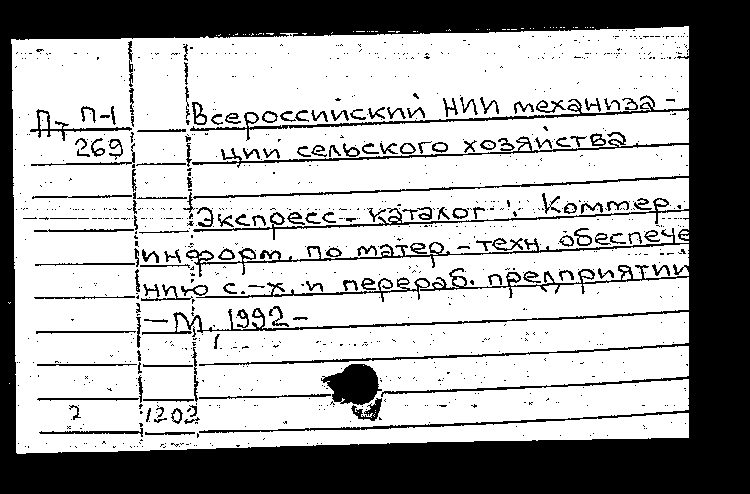 Пт П-1
269
Всероссийский НИИ механиза-
ции сельского хозяйства.
Экспресс-каталог : Коммер.
информ. по матер.-техн. обеспече
нию с.-х. и перераб. предприятий
— М., 1992-
2 1202